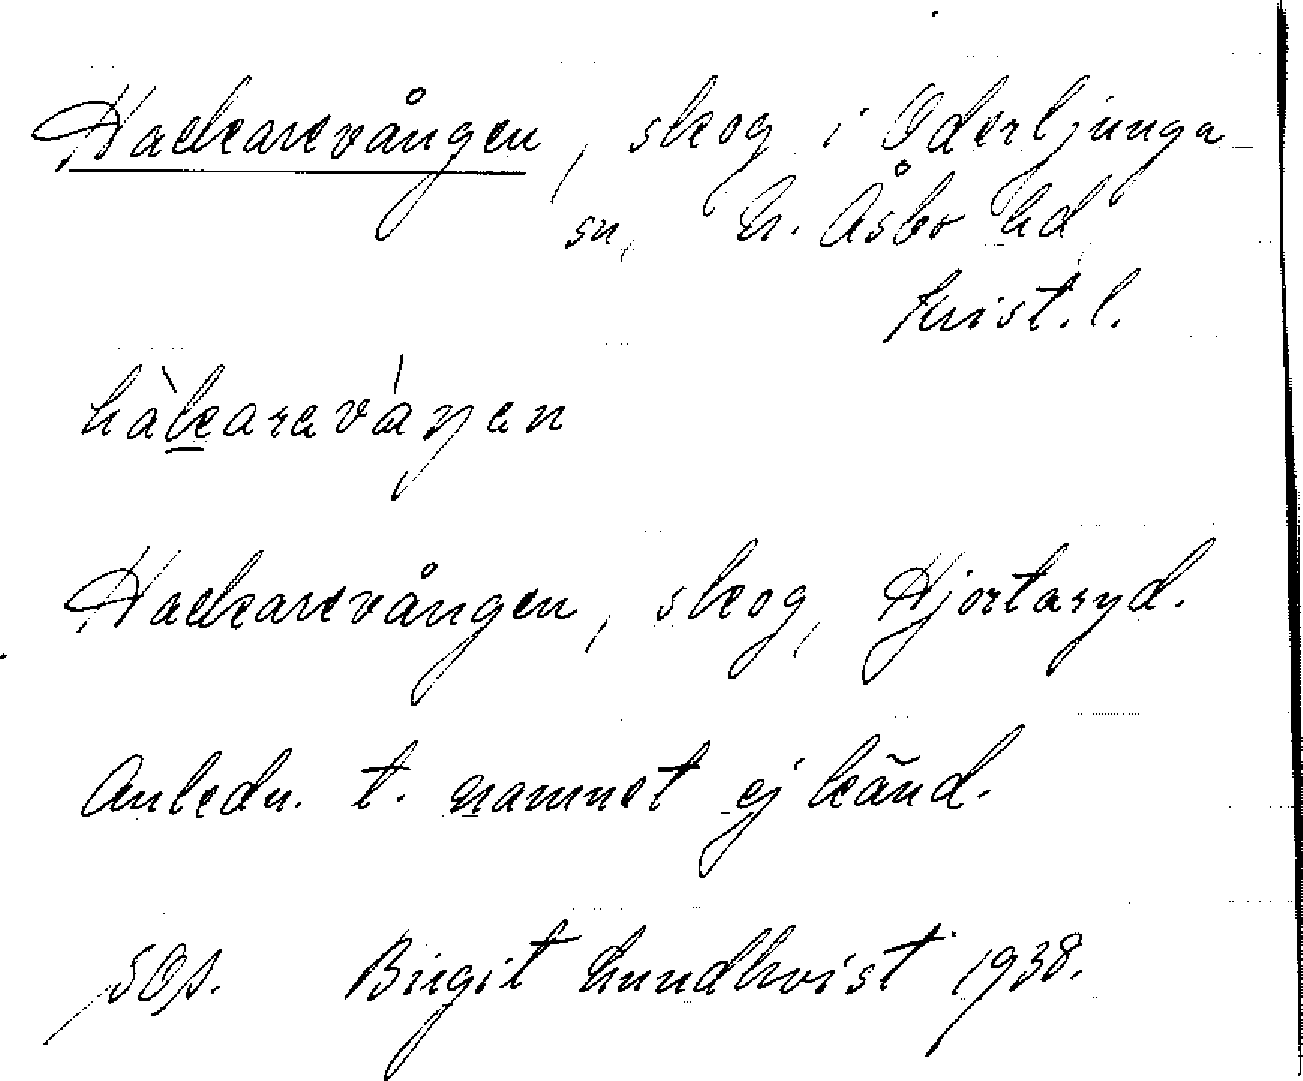 Hackarevången, skog i Oderljunga
sn, N. Åsbo hd
Krist. l.
hàkaraváŋen
Hackarevången, skog, Hjortaryd.
Anledn. t. namnet ej känd.
Birgit Lundkvist 1938.